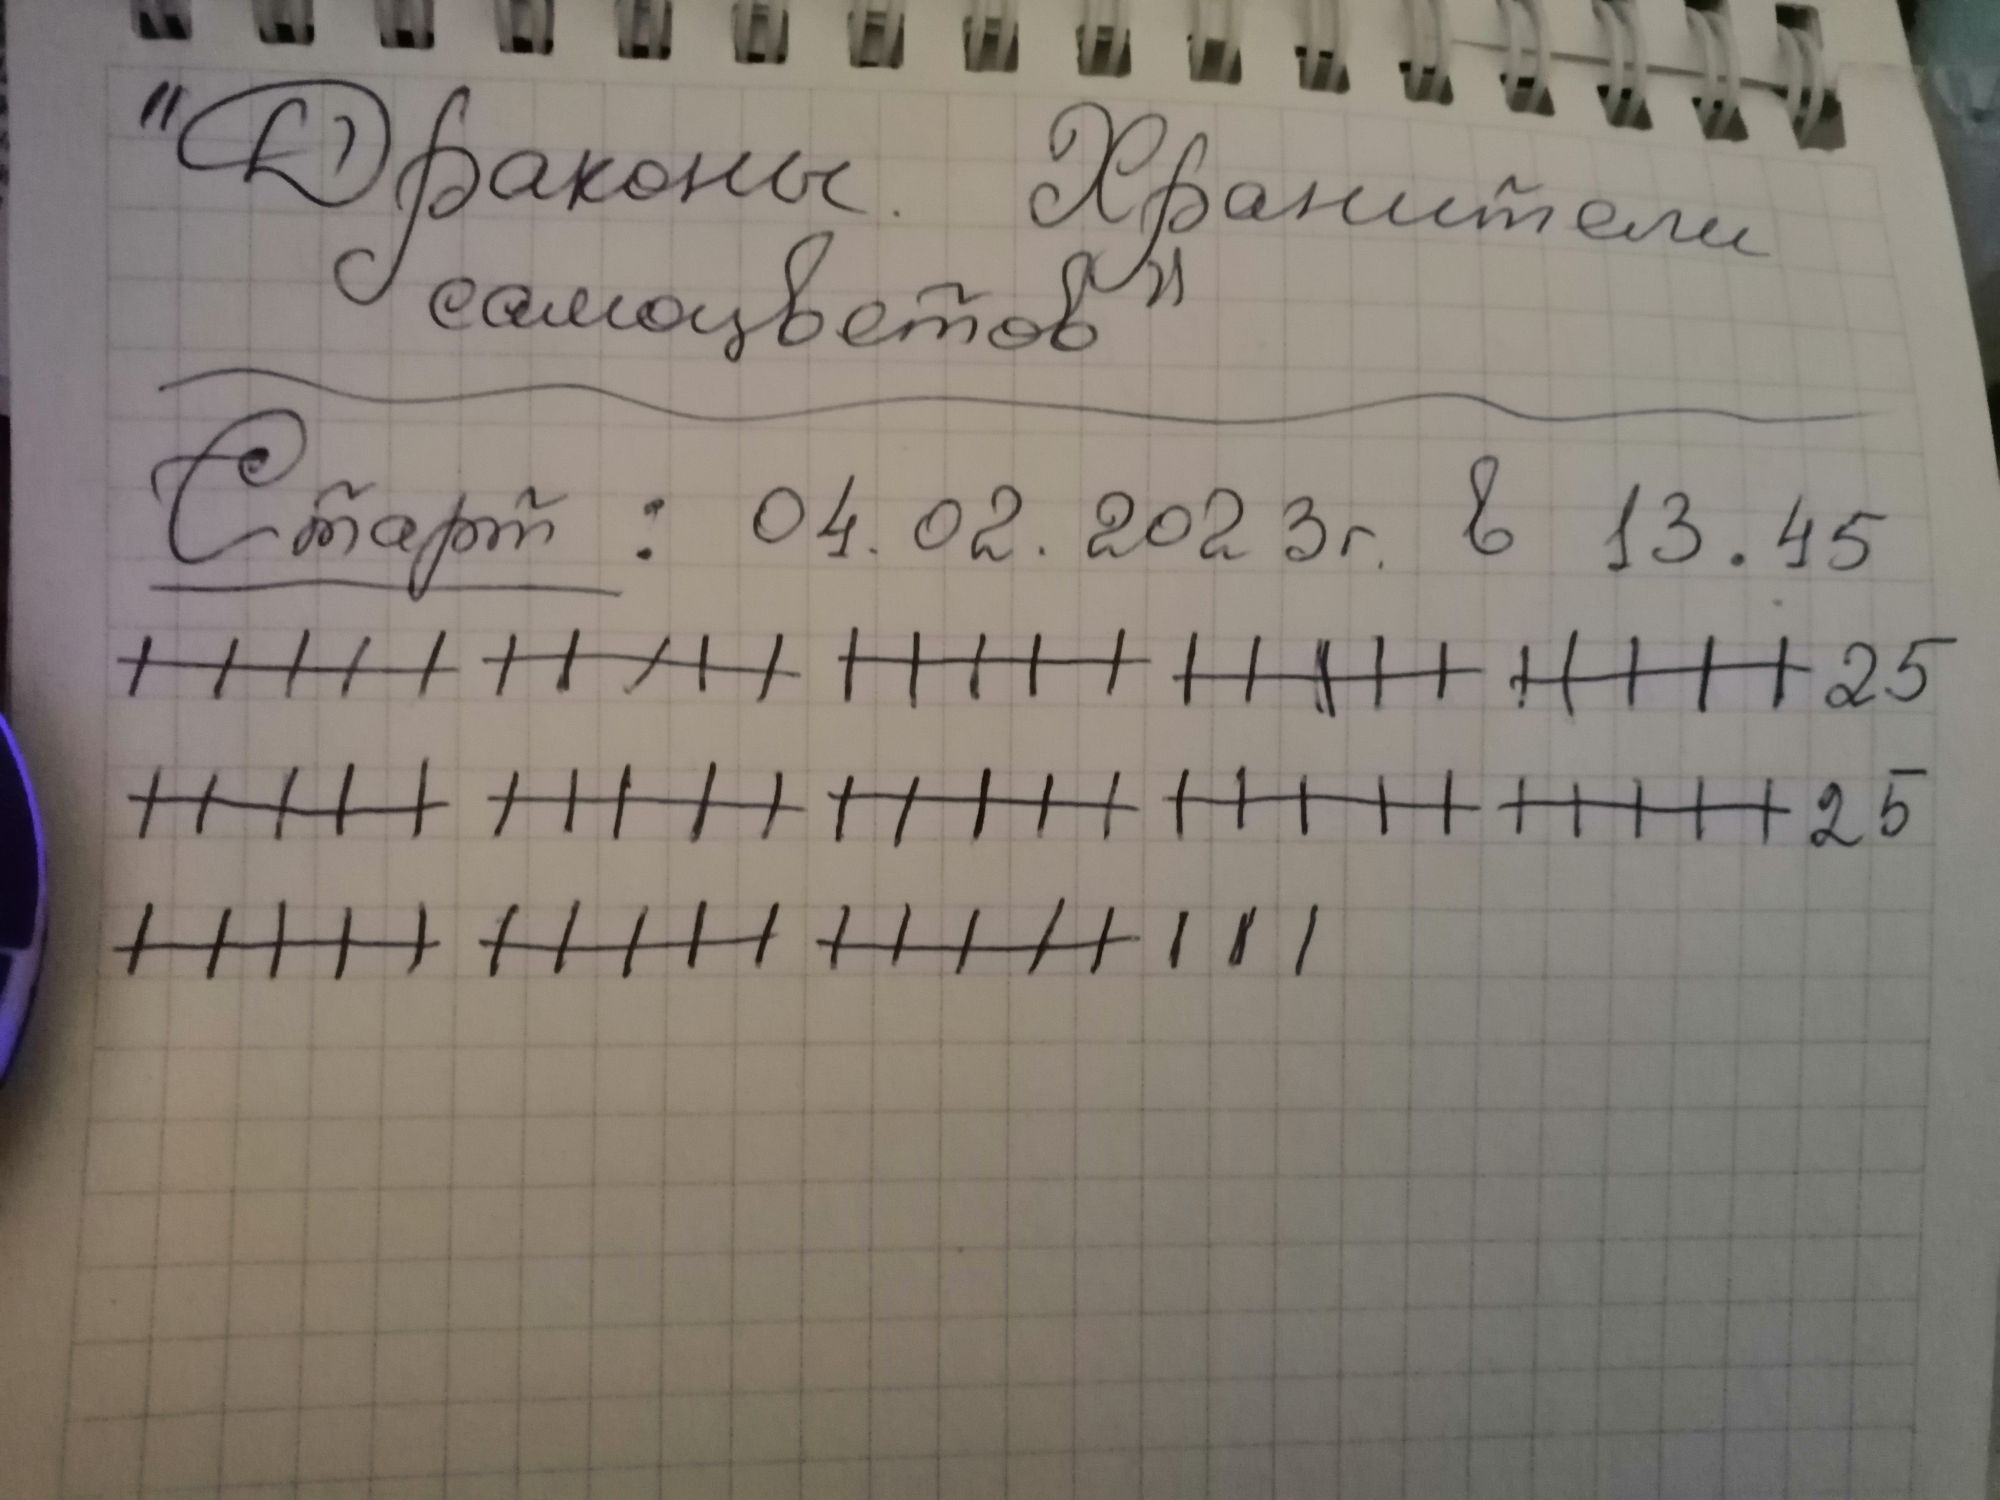 "Драконы. Хранители
самоцветов"
Старт: 04.02.2023г. в 13.45
25
25